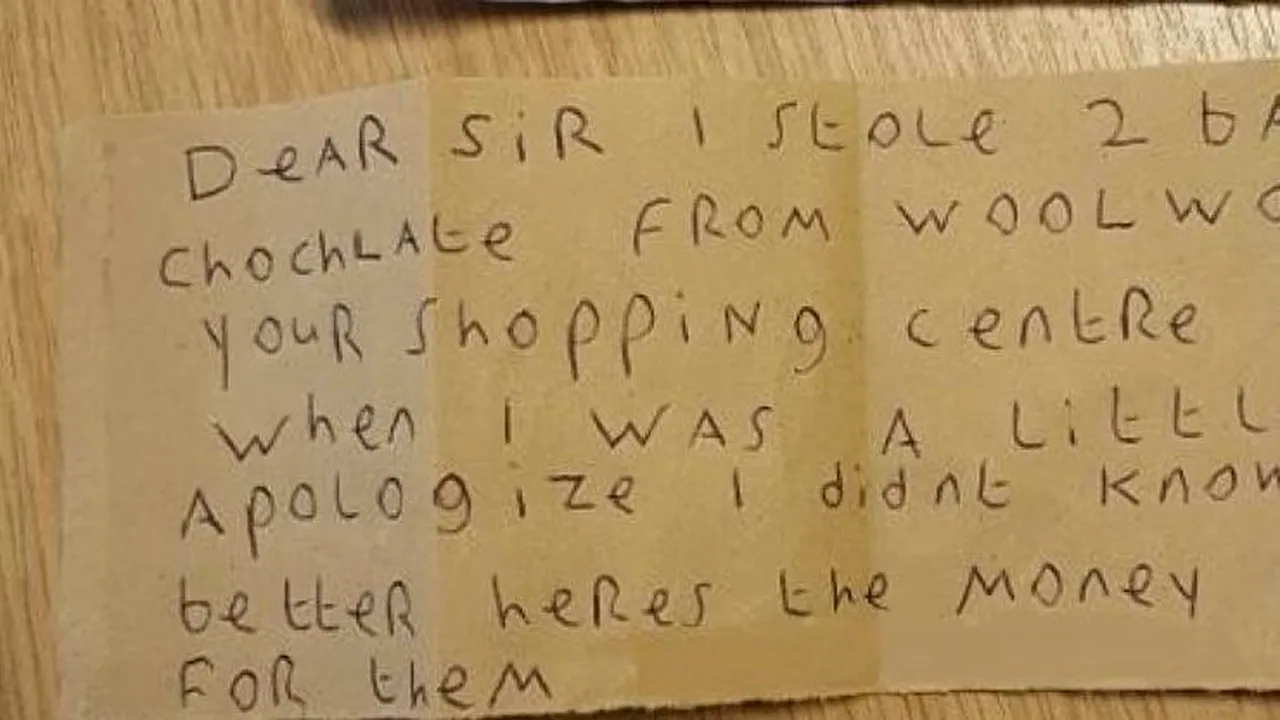 DeAR SiR I StOLe 2 bA
ChOchLAte FROM WOOLWO
yOuR ShoppiNg centRe
when I WAS A LittL
ApoLogize I didnt know
better heRes the Money
FOR theM